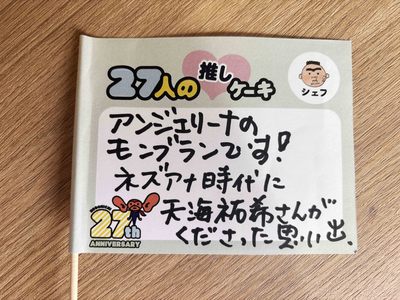 27人の推しケーキ
シェフ
アンジェリーナの
モンブランです!
ネズアナ時代に
天海祐希さんが
くださった思い出、
27th
ANNIVERSARY